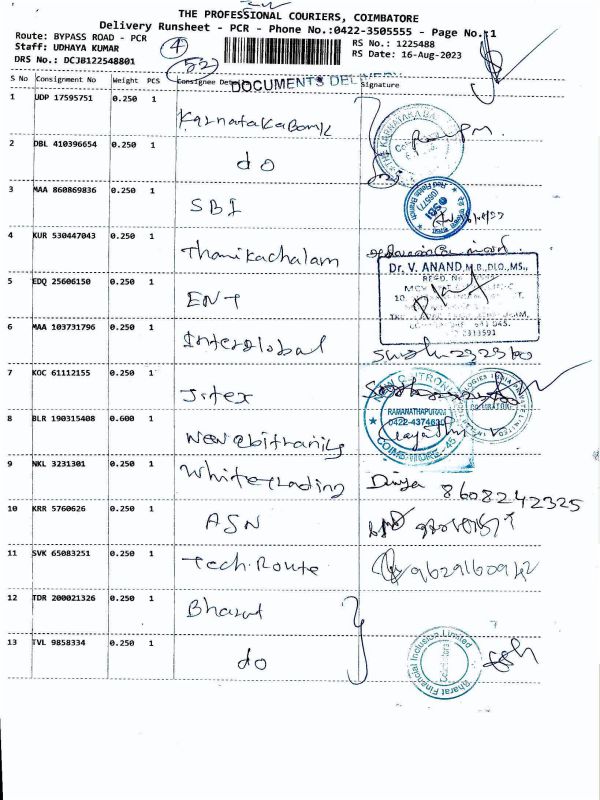 THE PROFESSIONAL COURIERS, COIMBATORE
Delivery Runsheet - PCR - Phone No.:0422-3505555 - Page No.:1
Route: BYPASS ROAD - PCR
RS No.: 1225488
Staff: UDHAYA KUMAR
4
RS Date: 16-Aug-2023
DRS No.: DCJ8122548801
52
DOCUMENTS DELIVERY
S No Consignment No Weight PCS Consignee Details Signature
1 UDP 17595751 0.250 1
Karnataka Bank
2 DBL 410396654 0.250 1
do
3 MAA 860869836 0.250 1
SBI
4 KUR 530447043 0.250 1
Thanikachalam
5 EDQ 25606150 0.250 1
Dr. V. ANAND, M.B.,DLO.,MS.,
ENT
6 MAA 103731796 0.250 1
2313591
Interglobal
7 KOC 61112155 0.250 1
Jitex
8 BLR 190315408 0.600 1
RAMANATHAPURAM
COIMBATORE - 45
9 NKL 3231301 0.250 1
White trading
Divya 8608242325
10 KRR 5760626 0.250 1
ASN
11 SVK 65083251 0.250 1
Tech. Route
12 TDR 200021326 0.250 1
Bharat
13 TVL 9858334 0.250 1
do
Bharat Financial Inclusion Limited